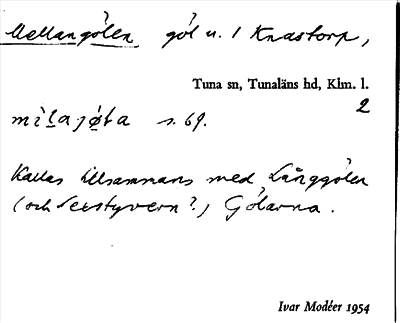 Mellangölen göl u. 1 Knastorp,
Tuna sn, Tunaläns hd, Klm. l.
2
s. 69.
Kallas tillsammans med Långgölen
(och Sexstyvern?) Gölarna.
Ivar Modéer 1954